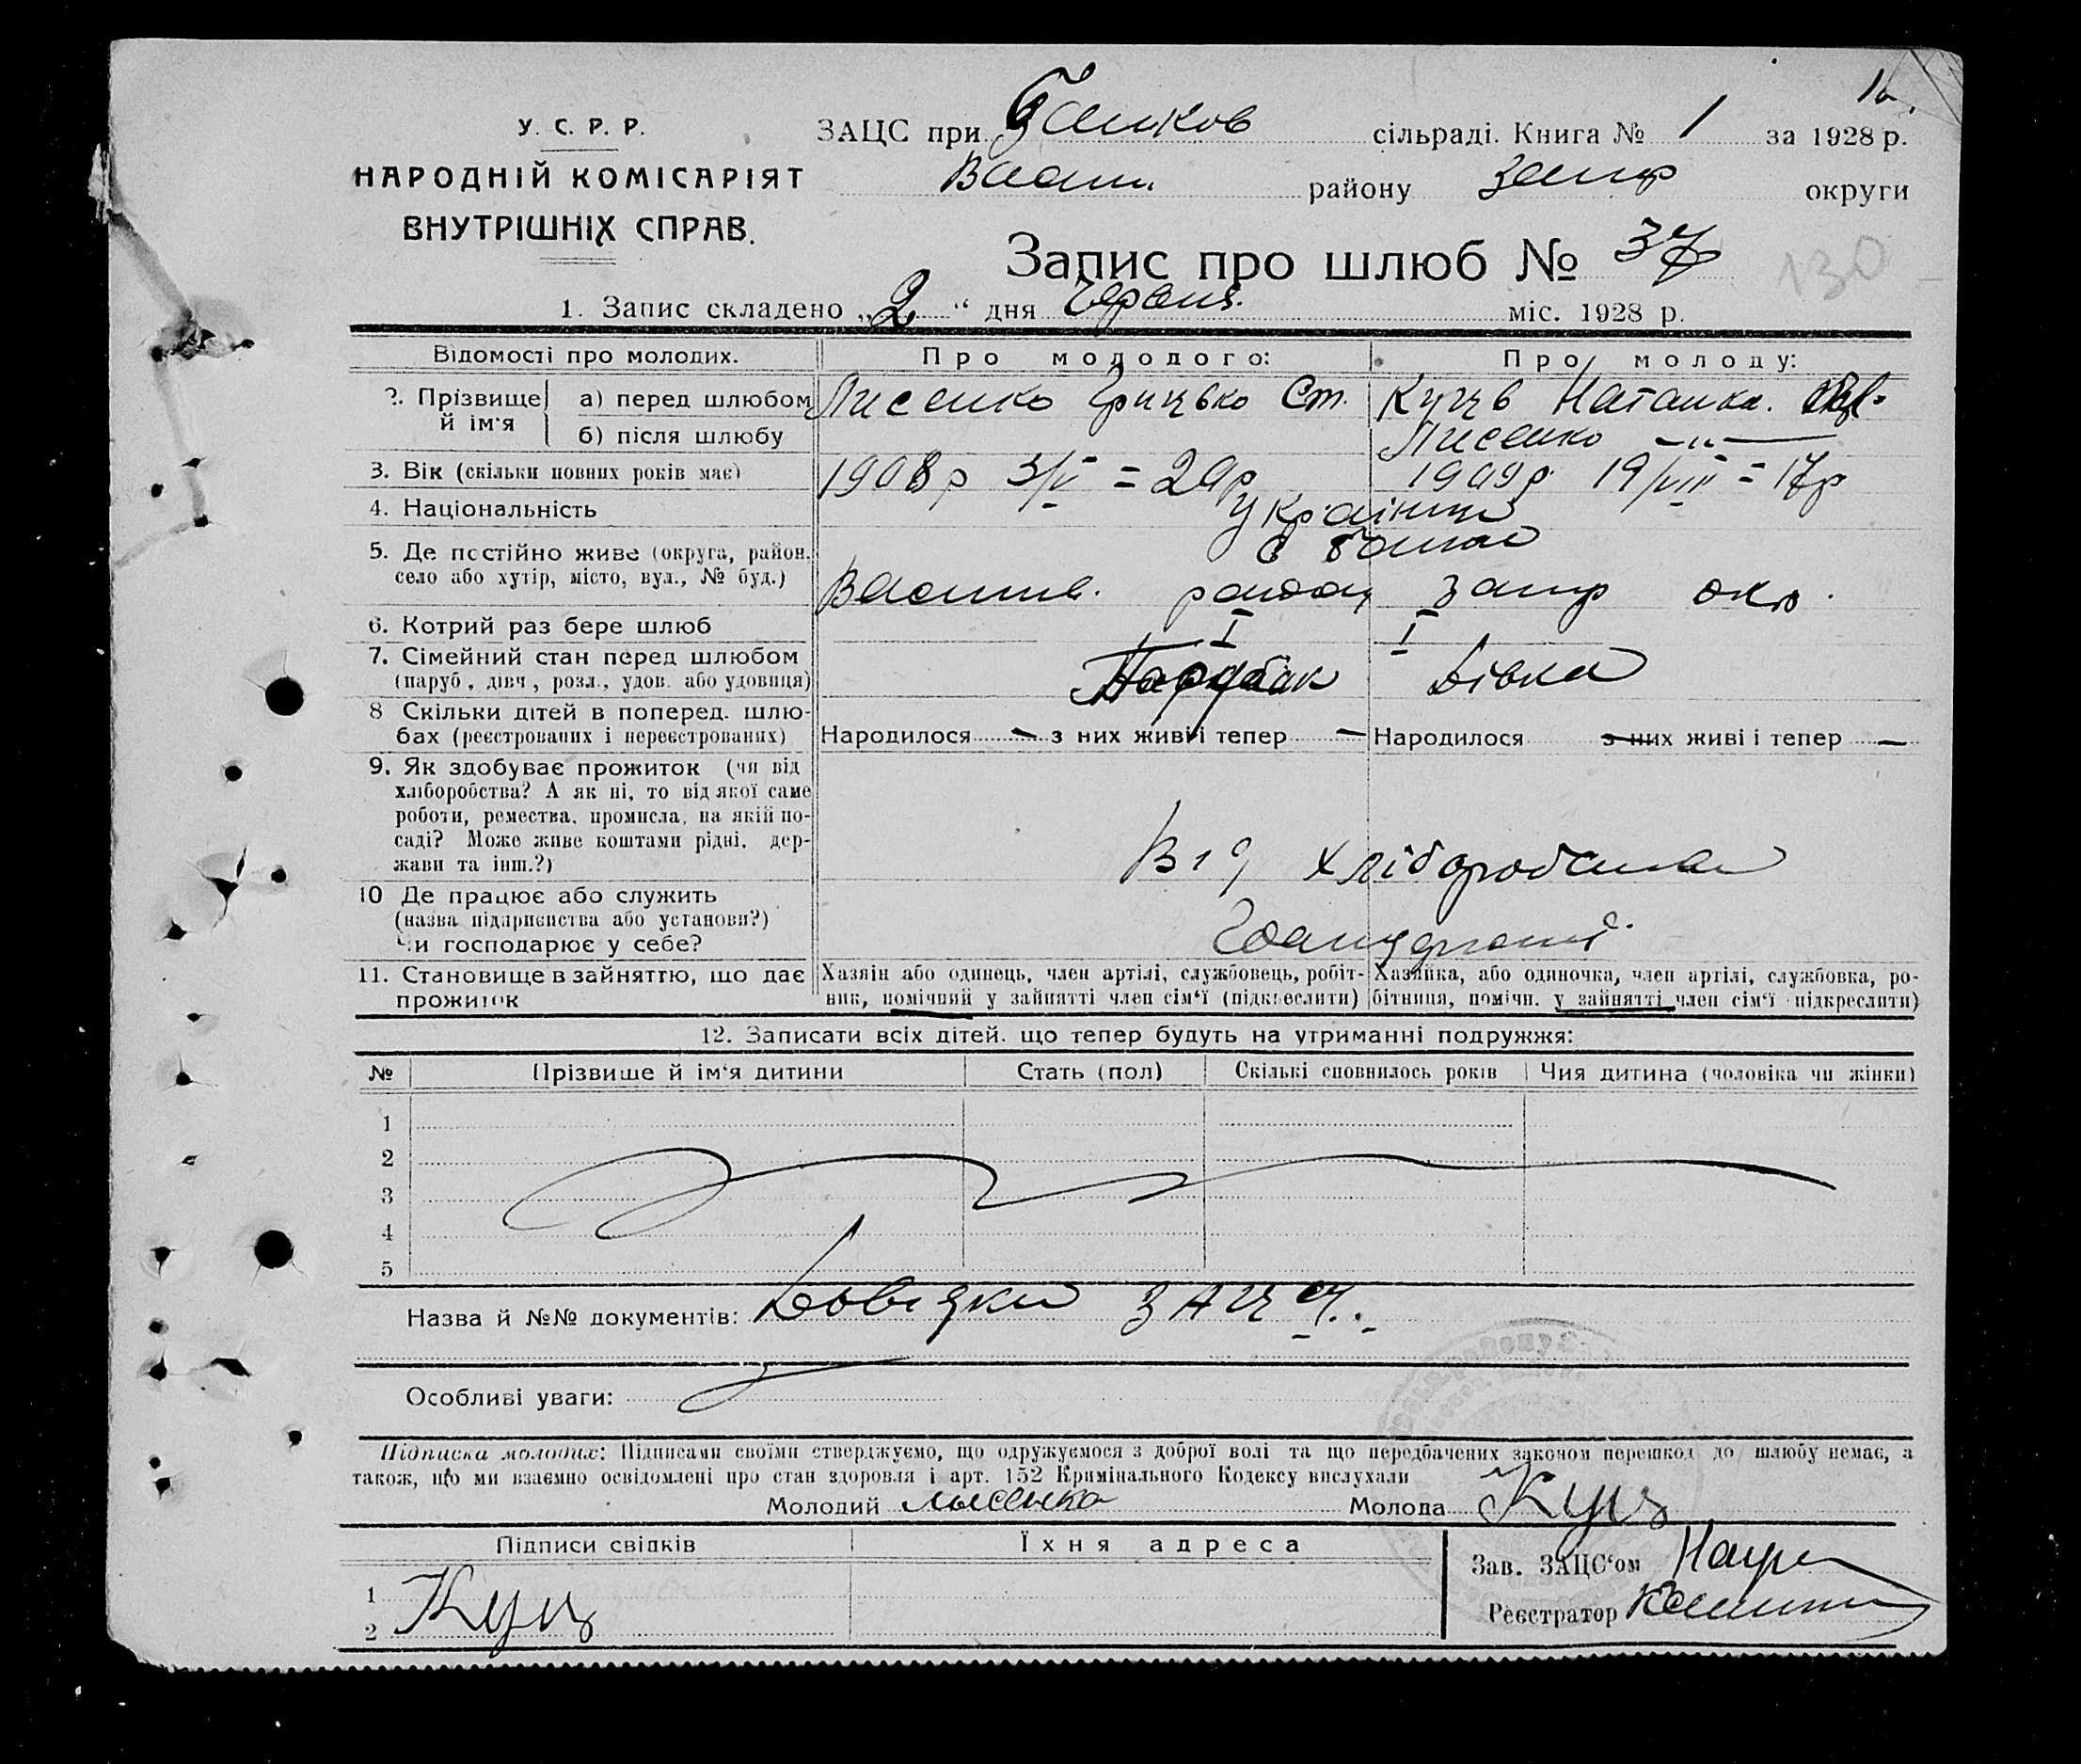 1
У. С. Р. Р.
НАРОДНІЙ КОМІСАРІЯТ
ВНУТРІШНІХ СПРАВ.
ЗАЦС при сільраді. Книга № 1 за 1928 р.
району Запор округи
Запис про шлюб № 37
130
1. Запис складено „2“ дня Червня міс. 1928 р.
Відомості про молодих. Про молодого: Про молоду:
2. Прізвище й ім'я а) перед шлюбом Лисенко Грицько Ст. Куць Наталка
б) після шлюбу Лисенко —"—
3. Вік (скільки повних років має) 1908 р 3/V = 20 р 1909 р 19/VIII = 17 р
4. Національність Українці
5. Де постійно живе (округа, район, село або хутір, місто, вул., № буд.)
Василів. району Запор окр.
6. Котрий раз бере шлюб I I
7. Сімейний стан перед шлюбом (паруб., дівч., розл., удов. або удовиця) Парубак Дівка
8 Скільки дітей в поперед. шлюбах (реєстрованих і нереєстрованих) Народилося — з них живі і тепер — Народилося з них живі і тепер —
9. Як здобуває прожиток (чи від хліборобства? А як ні, то від якої саме роботи, ремества, промисла, на якій посаді? Може живе коштами рідні, держави та інш.?) Від хліборобства
10 Де працює або служить (назва підприємства або установи?) Чи господарює у себе?
11. Становище в зайняттю, що дає прожиток
Хазяін або одинець, член артілі, службовець, робітник, помічний у зайнятті член сім'ї (підкреслити)
Хазяйка, або одиночка, член артілі, службовка, робітниця, помічн. у зайнятті член сім'ї підкреслити)
12. Записати всіх дітей, що тепер будуть на утриманні подружжя:
№ Прізвище й ім'я дитини Стать (пол) Скількі сповнилось років Чия дитина (чоловіка чи жінки)
1
2
3
4
5
Назва й №№ документів: Довідки ЗАЦС
Особливі уваги:
Підписка молодих: Підписами своїми стверджуємо, що одружуємося з доброї волі та що передбачених законом перешкод до шлюбу немає, а
також, що ми взаємно освідомлені про стан здоровля і арт. 152 Кримінального Кодексу вислухали
Молодий Молода Куц
Підписи свідків Їхня адреса
1
2 Куц
Зав. ЗАЦС'ом
Реєстратор